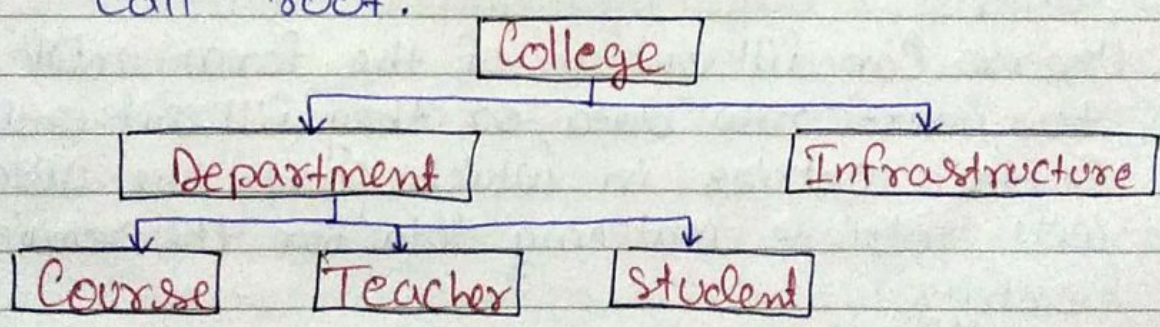 Call root.
College
Department Infrastructure
Course Teacher Student